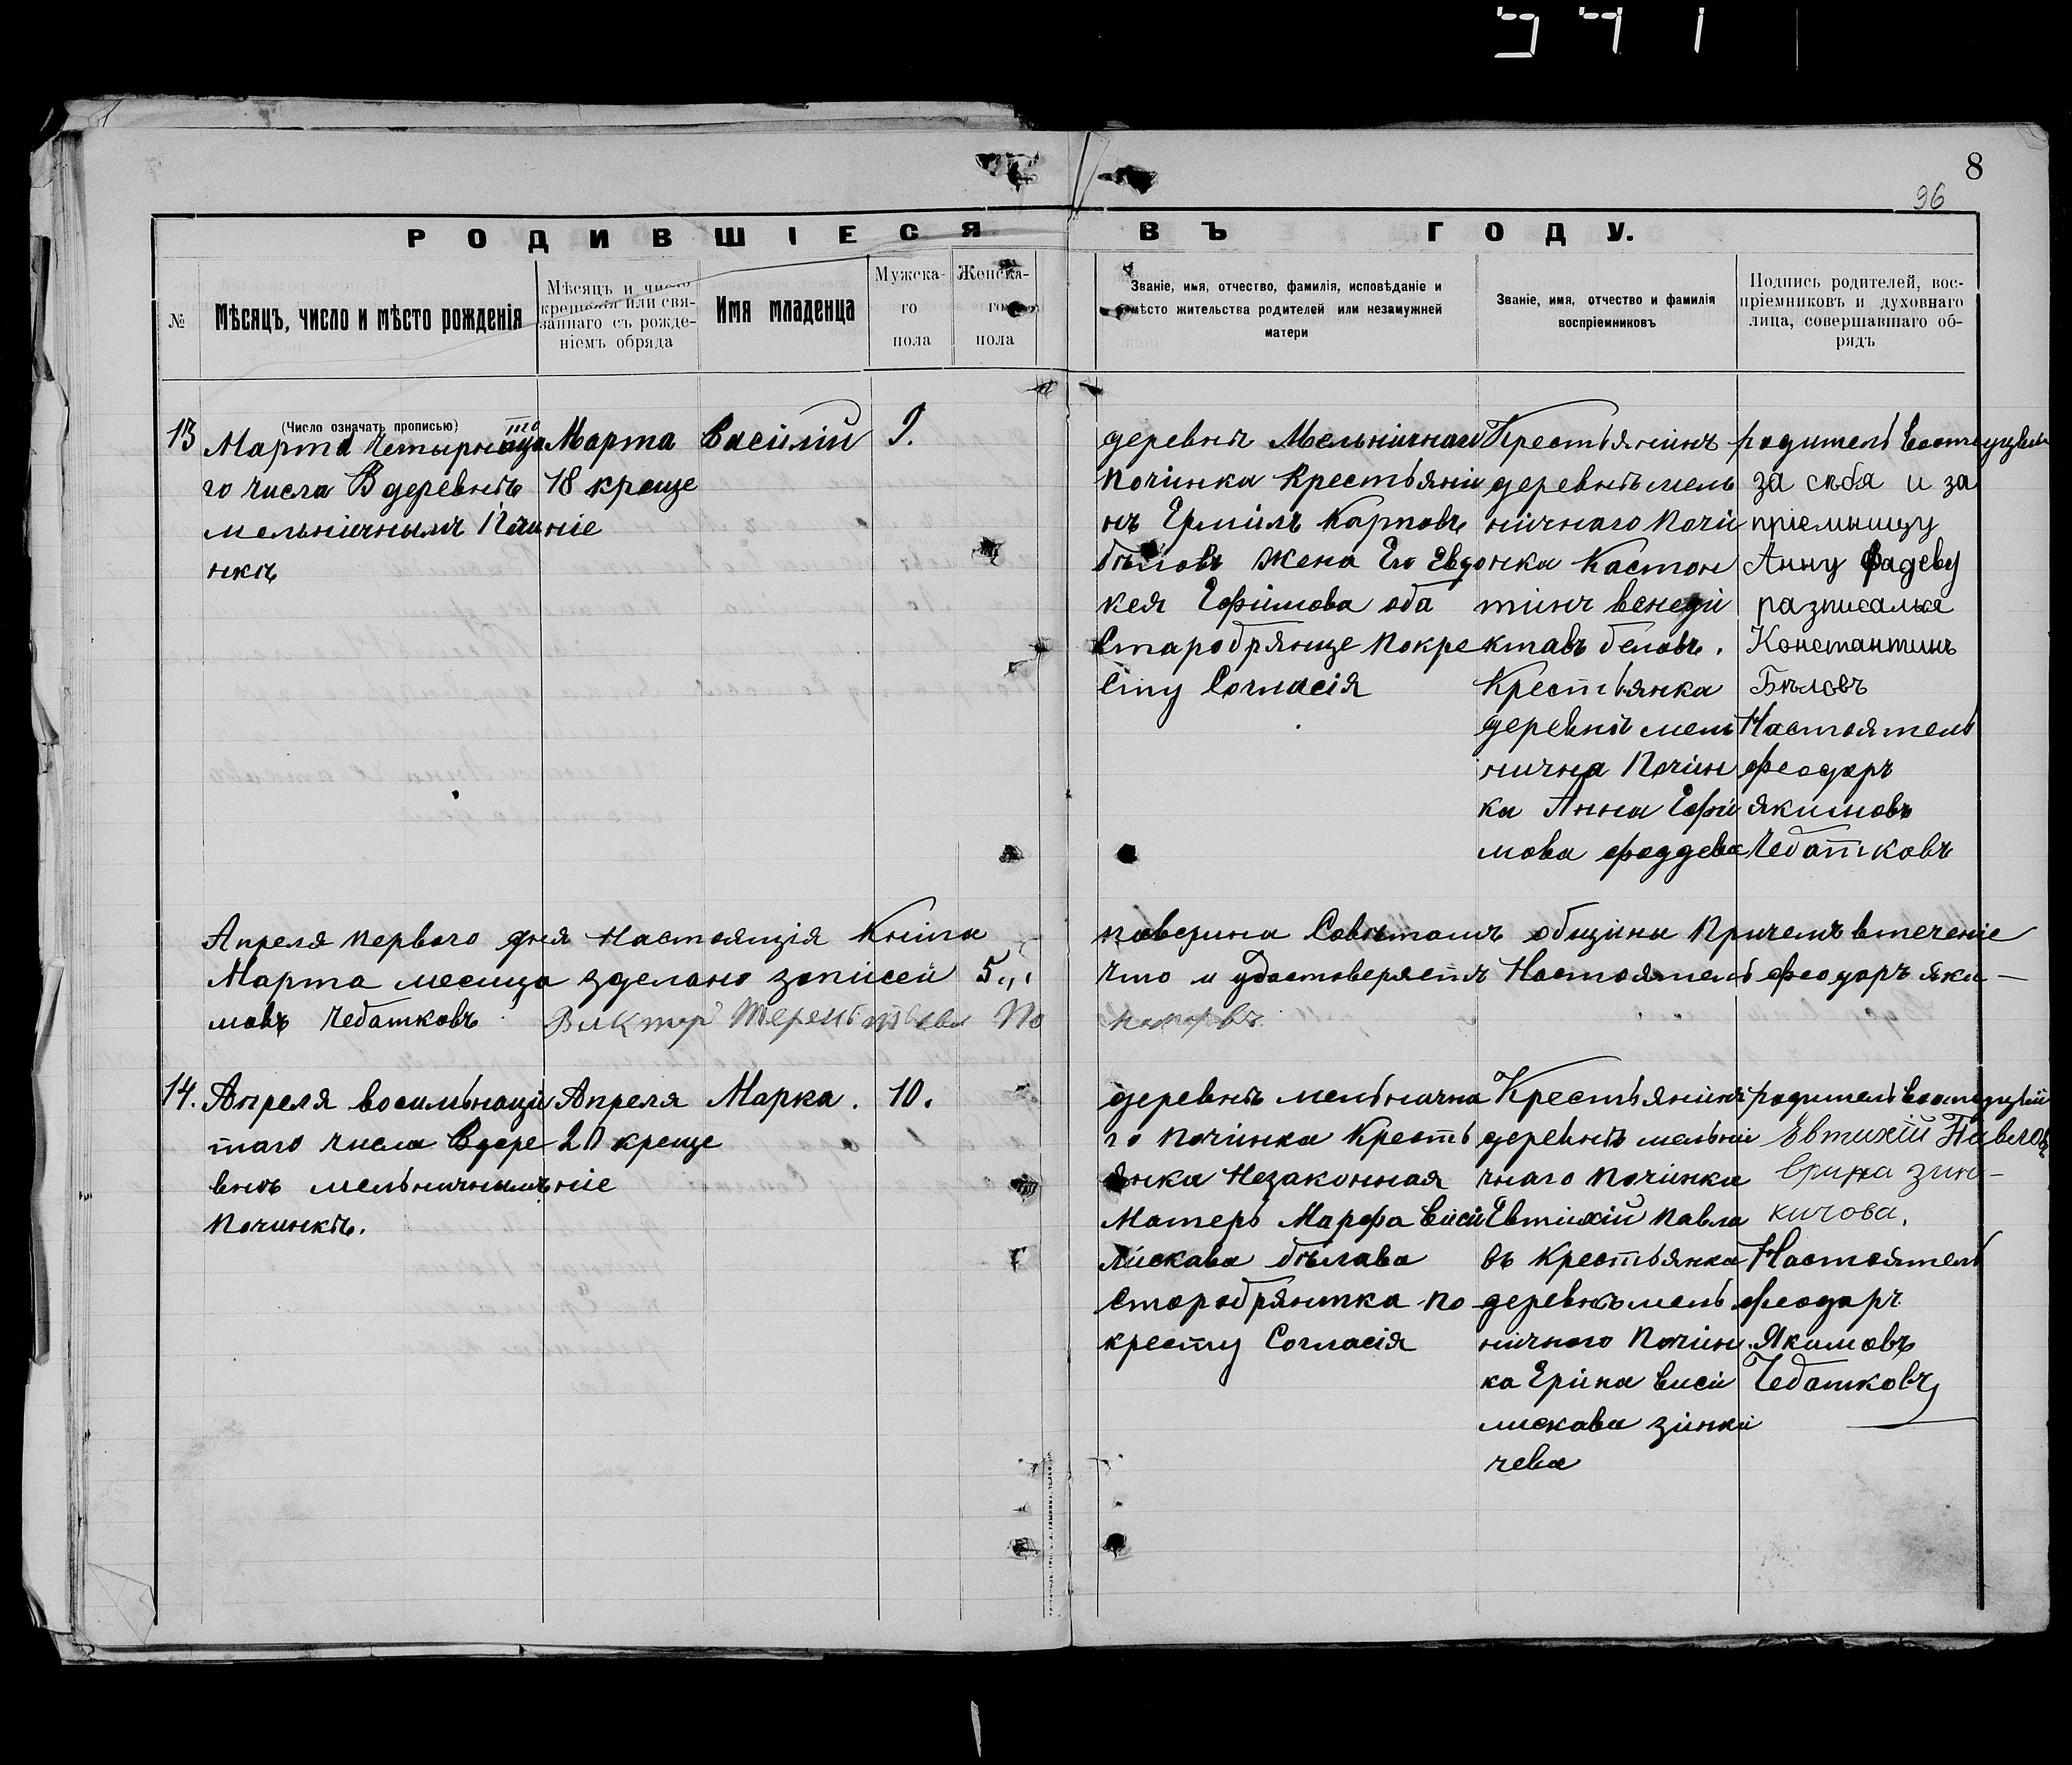 8
96
РОДИВШІЕСЯ ВЪ ГОДУ.
№
Мѣсяцъ, число и мѣсто рожденія
Мѣсяцъ и число
крещенія или свя-
заннаго съ рожде-
ніемъ обряда
Имя младенца
Мужска-
го
пола
Женска-
го
пола
Званіе, имя, отчество, фамилія, исповѣданіе и
мѣсто жительства родителей или незамужней
матери
Званіе, имя, отчество и фамилія
воспріемниковъ
Подпись родителей, вос-
пріемниковъ и духовнаго
лица, совершавшаго об-
рядъ
(Число означать прописью)
13
Марта Четырнаца
то
го числа В деревнѣ
мельнічнымъ Почи
нкѣ
Марта
18 креще
ніе
Васілій
9.
деревнѣ Мельнічнаго
Почінка Крестьяні
нъ Ермілъ Карповъ
бѣловъ Жена Его Евдо
кея Ефімова оба
Старобрянце Покре
сту Согласія
Крестьянінъ
деревнѣ мель
нічнаго Почі
нка Кастон
тінъ венеди
ктавъ беловъ.
Крестьянка
деревнѣ мель
нична Почін
ка Анна Ефи
мова фаддева
родитель
за себя и за
приемницу
Анну Фадеву
разписалься
Константинъ
Бѣловъ
Настоятель
феодаръ
якимовъ
Чебатковъ
Апреля первого дня настоящія Кніга
Марта месица зделано запісей 5.,.
мовъ Чебатковъ
Виктор Терентьевъ По
паверина Совѣтомъ общины Причемъ втеченіе
Что и удостоверяетъ Настоятель феодаръ яки-
14.
Апреля восимьнаци
таго числа Вдере
внѣ мельничнымъ
Починкѣ.
Апреля
20 креще
ніе
Марка.
10.
деревнѣ мельнична
го почінка Кресть
янка Незаконная
Матерь Марфа Висі
ліскава бѣлава
старобрянтка по
кресту Согласія
Крестьянінъ
деревнѣ мельні
чнаго почінка
Евтихій павла
въ Крестьянка
деревнѣ мель
нічного Почін
ка Еріна виси
лискава зінкі
чева
родитель
Евтихій Павловъ
Ерина зин-
кичова.
Настоятель
феодаръ
Якимовъ
Чебатковъ